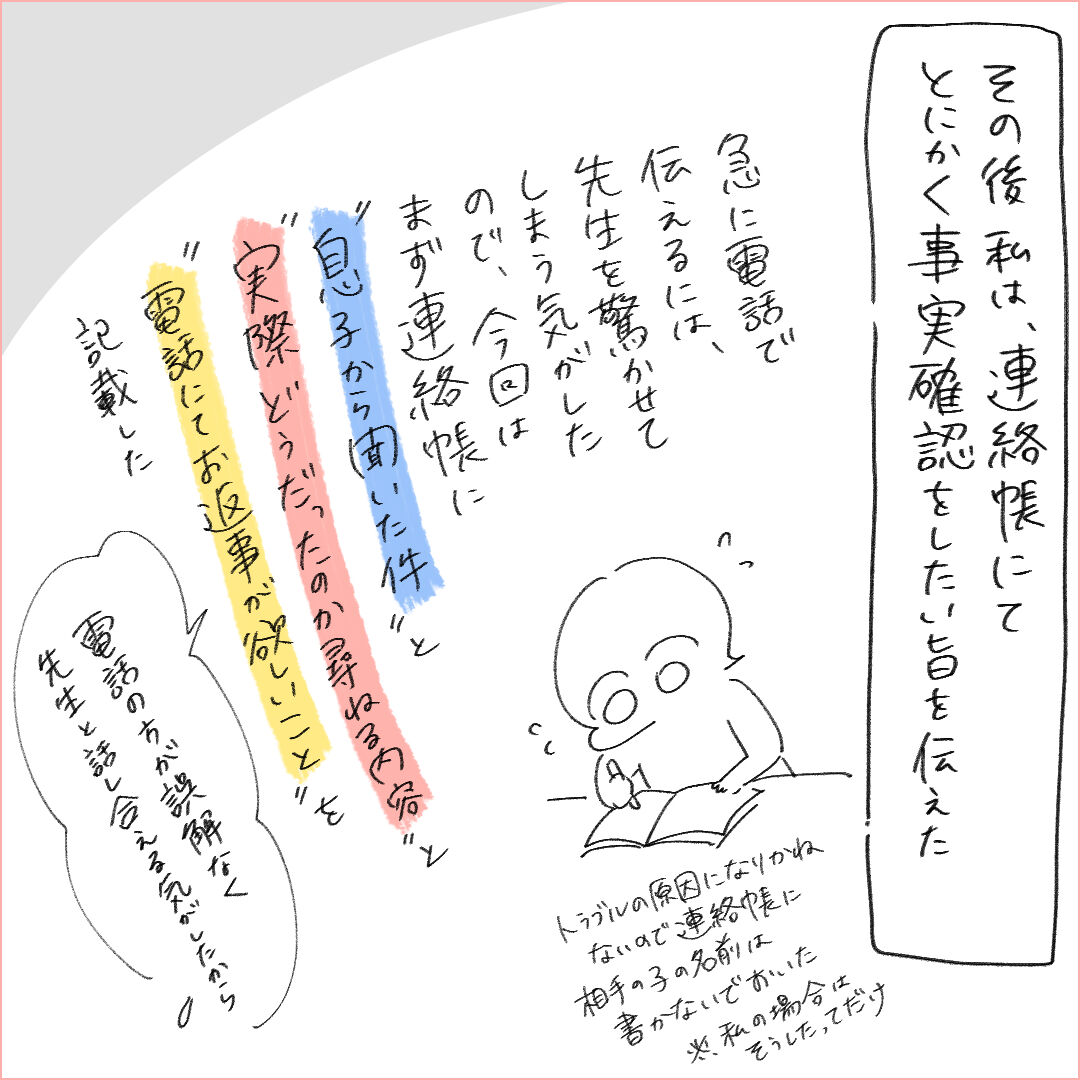 その後 私は、連絡帳にて
とにかく事実確認をしたい旨を伝えた
急に電話で
伝えるには、
先生を驚かせて
しまう気がした
ので、今回は
まず連絡帳に
"息子から聞いた件"と
"実際どうだったのか尋ねる内容"と
"電話にてお返事が欲しいこと"を
記載した
電話の方が誤解なく
先生と話し合える気がしたから
トラブルの原因になりかね
ないので連絡帳に
相手の子の名前は
書かないでおいた
※私の場合は
そうしたってだけ